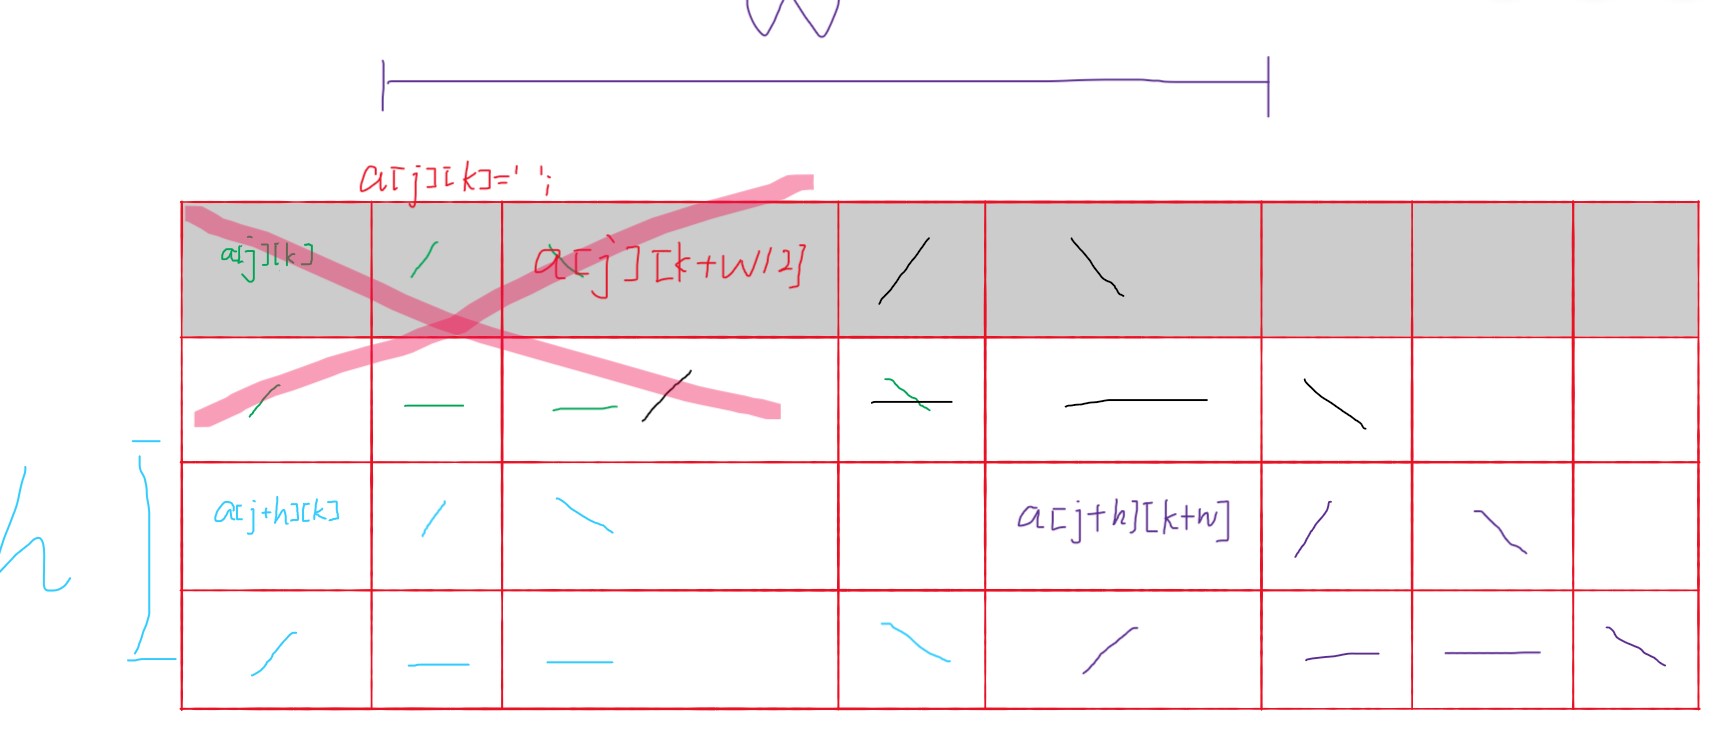 W
a[j][k]=' ';
a[j][k] / \ a[j][k+w/2] / \
/ _ _ / \ _ _ \
h
a[j+h][k] / \ a[j+h][k+w] / \
/ _ _ \ / _ _ \